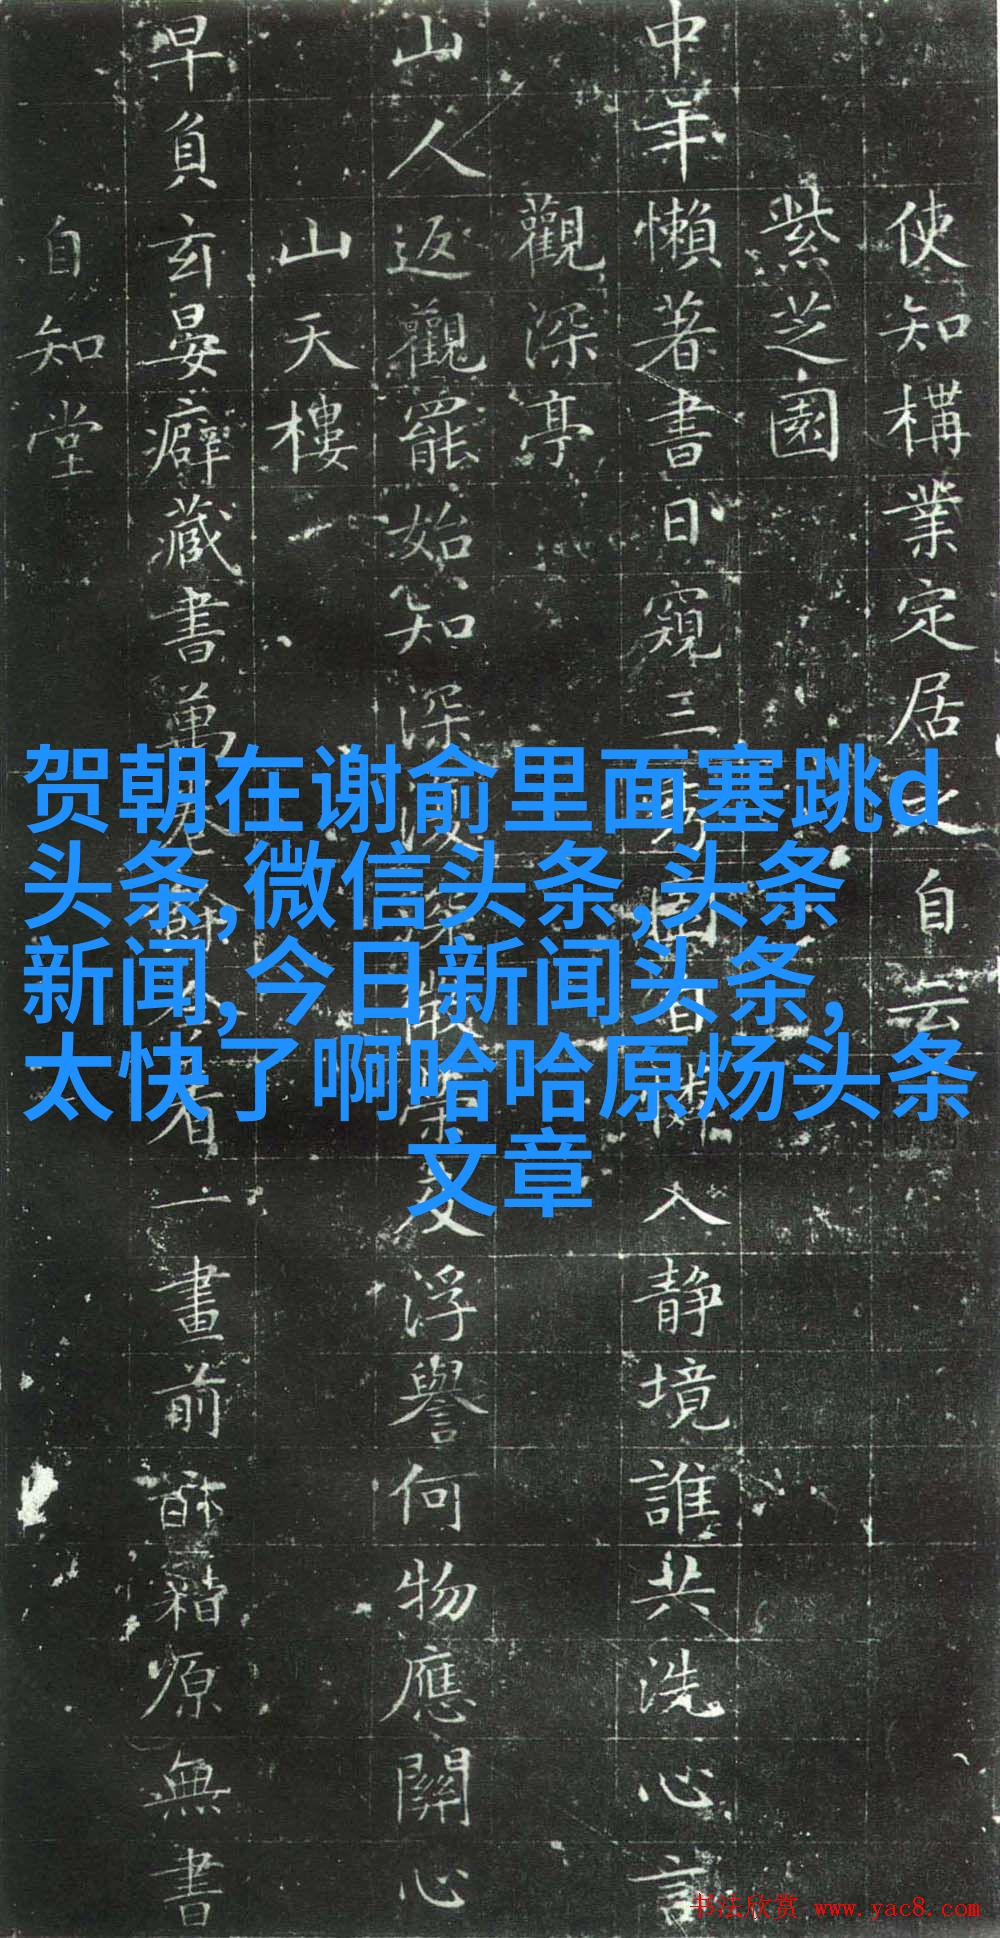 使知構業定居之自云
紫芝園
中年懶著書日窺三入靜境誰共洗心言
觀深亭
山人返觀罷始知深浮譽何物應關心
山天樓
早負玄晏癖藏書萬看一畫前籍原無書
自知堂
贺朝在谢俞里面塞跳d
头条,微信头条,头条
新闻,今日新闻头条,
太快了啊哈哈原炀头条
文章
书法欣赏 www.yac8.com